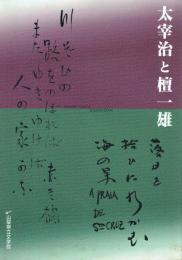 太宰治と檀一雄
川ぞひの
路をのぼれば
赤き橋
またゆきゆけば
人の家かな
落日を
拾ひに行かむ
海の果
A PRAIA
DE
STA CRUZ
山梨県立文学館